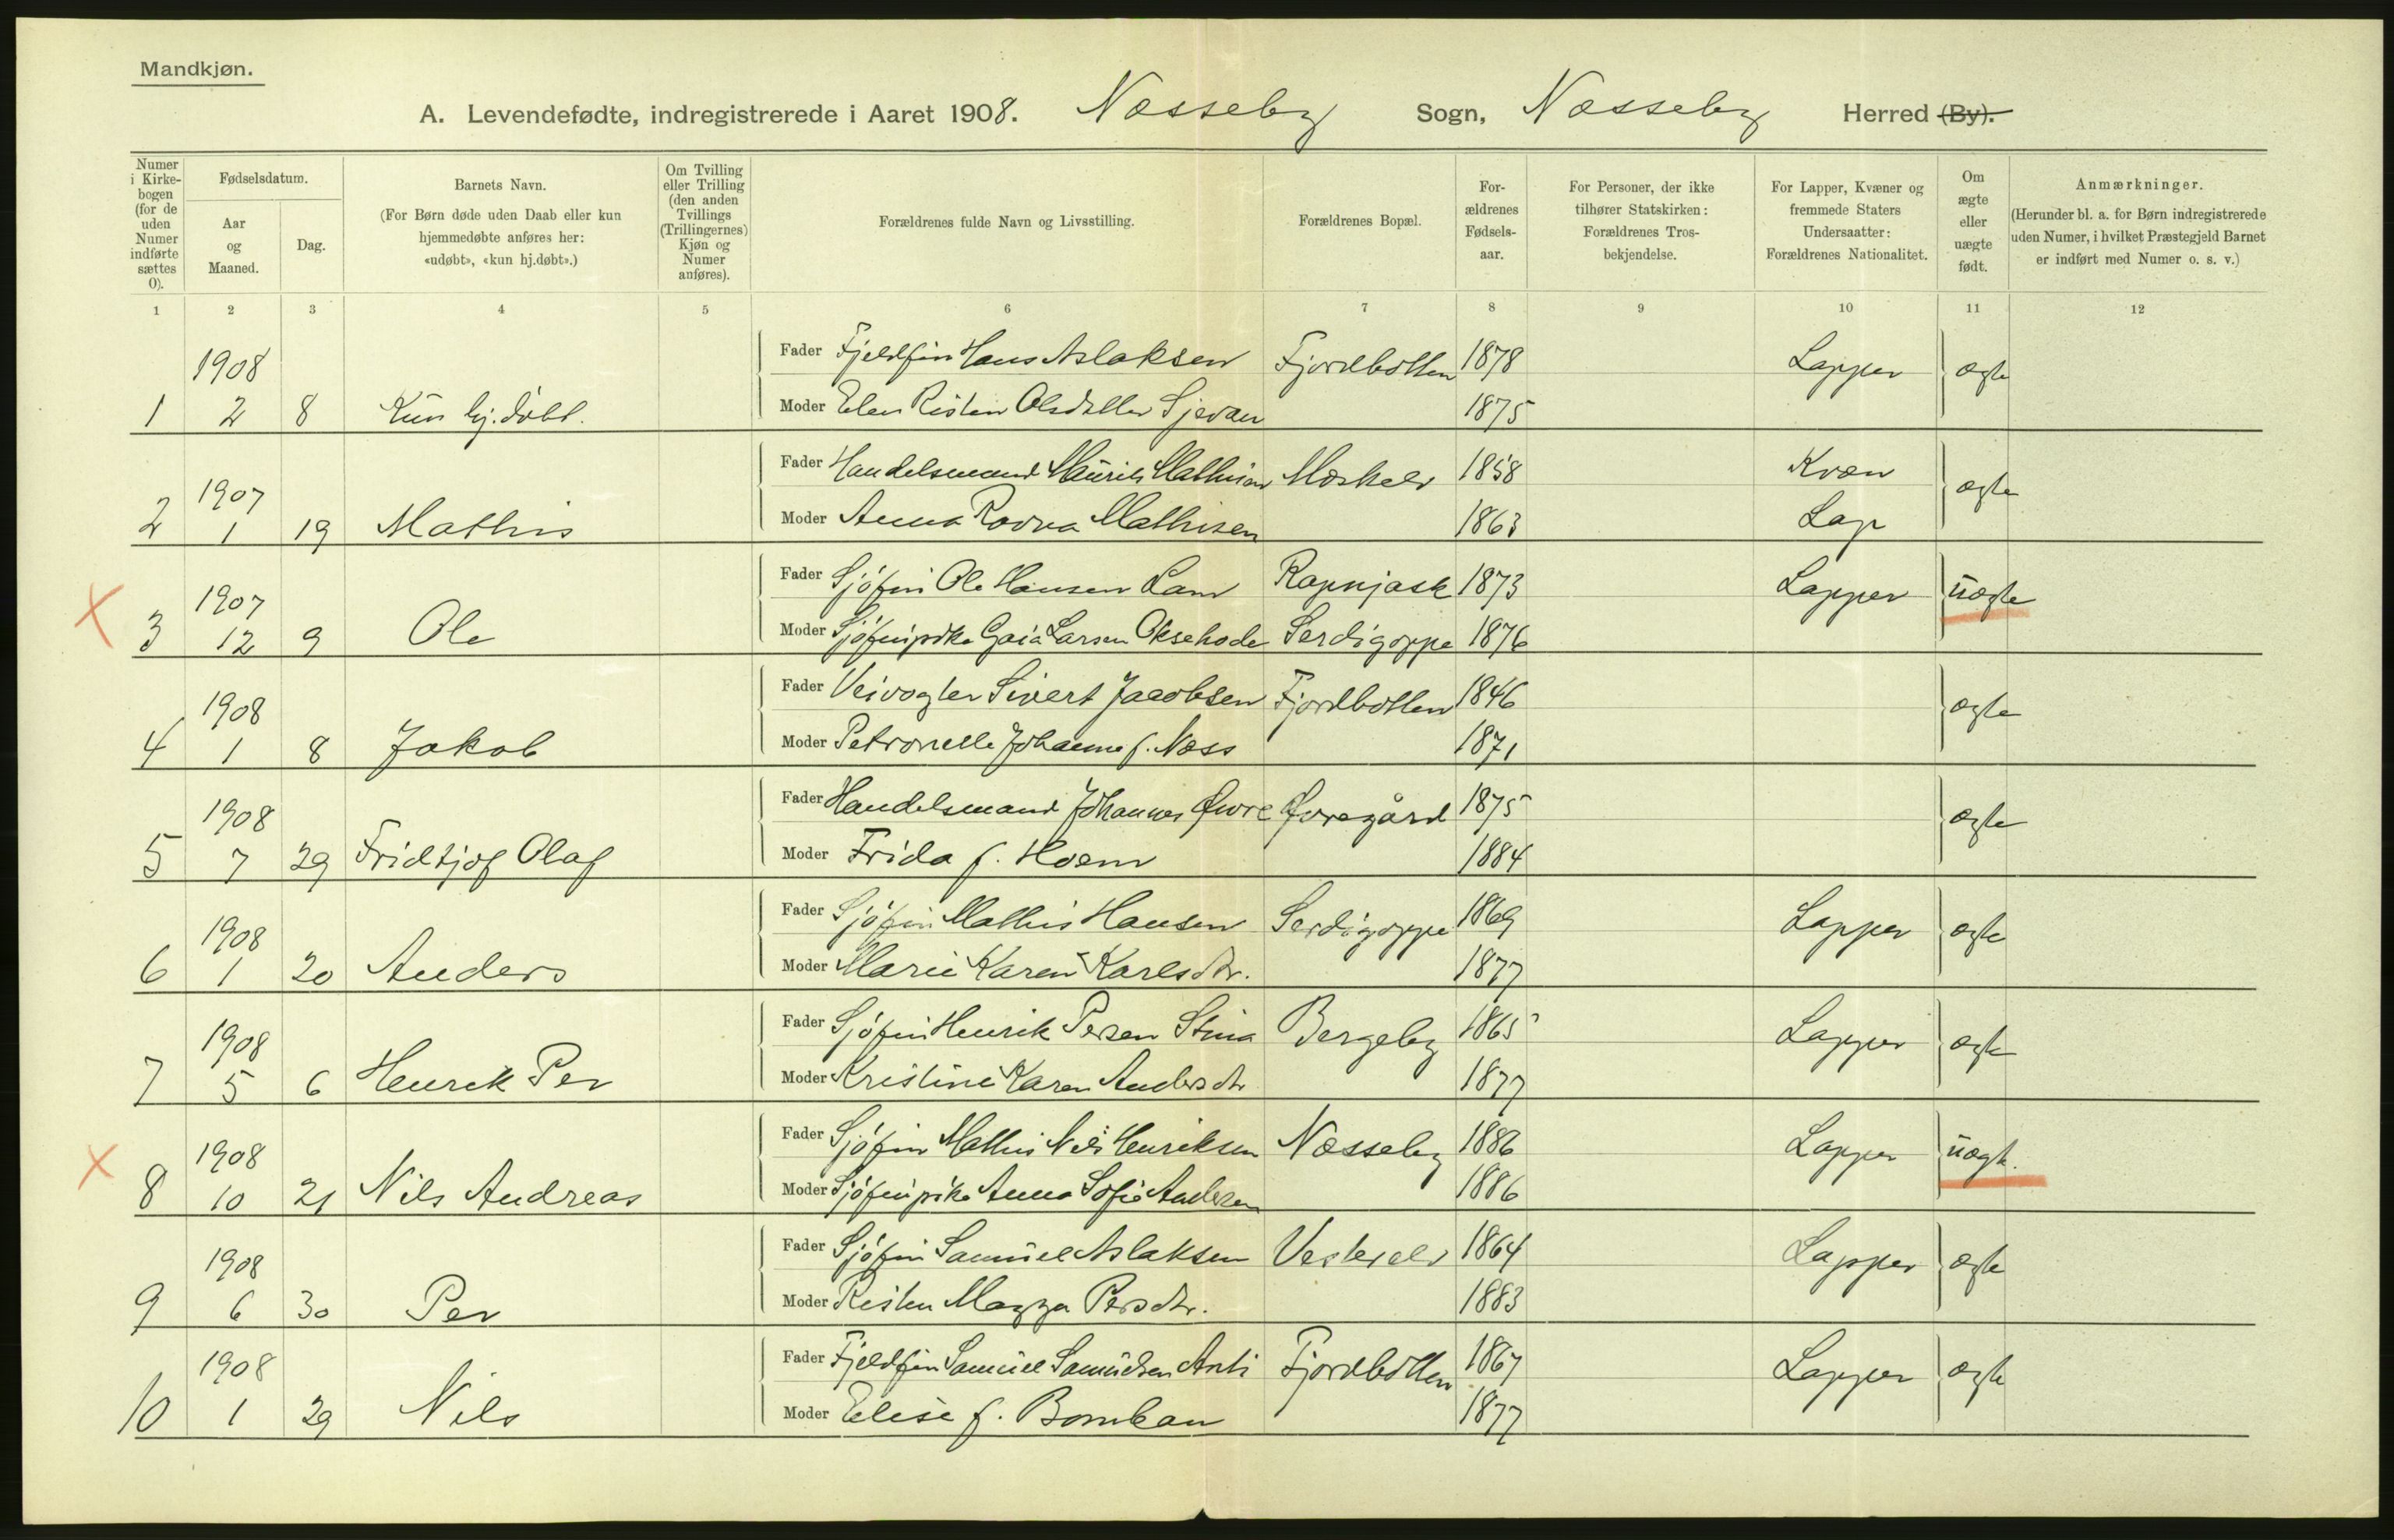 Mandkjøn.
A. Levendefødte, indregistrerede i Aaret 1908. Næsseby Sogn, Næsseby Herred (By).
Numer i Kirkebogen (for de uden Numer indførte sættes 0).
Fødselsdatum.
Aar og Maaned.
Dag.
Barnets Navn.
(For Børn døde uden Daab eller kun hjemmedøbte anføres her: «udøbt», «kun hj.døbt».)
Om Tvilling eller Trilling (den anden Tvillings (Trillingernes) Kjøn og Numer anføres).
Forældrenes fulde Navn og Livsstilling.
Forældrenes Bopæl.
For-ældrenes Fødsels-aar.
For Personer, der ikke tilhører Statskirken: Forældrenes Tros-bekjendelse.
For Lapper, Kvæner og fremmede Staters Undersaatter: Forældrenes Nationalitet.
Om ægte eller uægte født.
Anmærkninger.
(Herunder bl. a. for Børn indregistrerede uden Numer, i hvilket Præstegjeld Barnet er indført med Numer o. s. v.)
1 2 3 4 5 6 7 8 9 10 11 12
1908 Fader Fjeldfin Hans Aslaksen Fjordbotten 1878 Lapper ægte
1 2 8 Kun hj.døbt. Moder Elen Risten Olsdatter 1875
1907 Fader Handelsmand Mauritz Mathisen 1858 Kvæn ægte
2 1 19 Mathis Moder Anna Ravna Mathisen 1863 Lap
1907 Fader Sjøfin Ole Hansen 1873 Lapper uægte
3 12 9 Ole Moder Sjøfinpike Gaia Larsen Oksehode 1876
1908 Fader Veivogter Sivert Jacobsen Fjordbotten 1846 ægte
4 1 8 Jakob Moder Petronelle Johanne f. Næss 1871
1908 Fader Handelsmand Johannes Øvre Øvregård 1875 ægte
5 7 29 Fridtjof Olaf Moder Frida f. Hoem 1884
1908 Fader Sjøfin Mathis Hansen 1869 Lapper ægte
6 1 20 Anders Moder Marie Karen Karlsdtr. 1877
1908 Fader Sjøfin Henrik Persen Bergeby 1865 Lapper ægte
7 5 6 Henrik Per Moder Kristine Karen Andersdtr 1877
1908 Fader Sjøfin Mathis Nils Henriksen Næsseby 1886 Lapper uægte
8 10 21 Nils Andreas Moder Sjøfinpike Anna Sofie Andersen 1886
1908 Fader Sjøfin Samuel Aslaksen Vesterelv 1864 Lapper ægte
9 6 30 Per Moder Risten Magga Persdtr. 1883
1908 Fader Fjeldfin Samuel Samuelsen Anti Fjordbotten 1867 Lapper ægte
10 1 29 Nils Moder Elise f. Bomban 1877